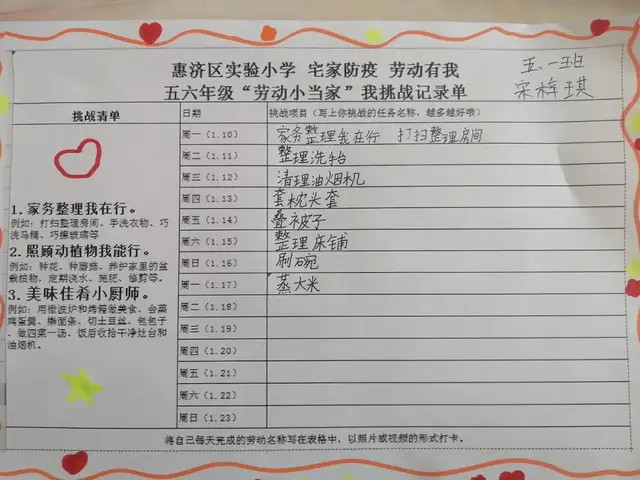 惠济区实验小学 宅家防疫 劳动有我
五六年级“劳动小当家”我挑战记录单
五、一班
宋梓琪
挑战清单
1. 家务整理我在行。
例如：打扫整理房间、手洗衣物、巧
洗马桶、巧擦玻璃等
2. 照顾动植物我能行。
例如：种花、种蘑菇、养护家里的盆
栽植物、定期浇水、施肥、修剪等。
3. 美味佳肴小厨师。
例如：用微波炉和烤箱做美食、会蒸
鸡蛋羹、擀面条、切土豆丝、包包子
、做四菜一汤、饭后收拾干净灶台和
油烟机。
日期 挑战项目（写上你挑战的任务名称，越多越好哦）
周一（1.10） 家务整理我在行 打扫整理房间
周二（1.11） 整理洗台
周三（1.12） 清理油烟机
周四（1.13） 套枕头套
周五（1.14） 叠被子
周六（1.15） 整理床铺
周日（1.16） 刷碗
周一（1.17） 蒸大米
周二（1.18）
周三（1.19）
周四（1.20）
周五（1.21）
周六（1.22）
周日（1.23）
将自己每天完成的劳动名称写在表格中，以照片或视频的形式打卡。